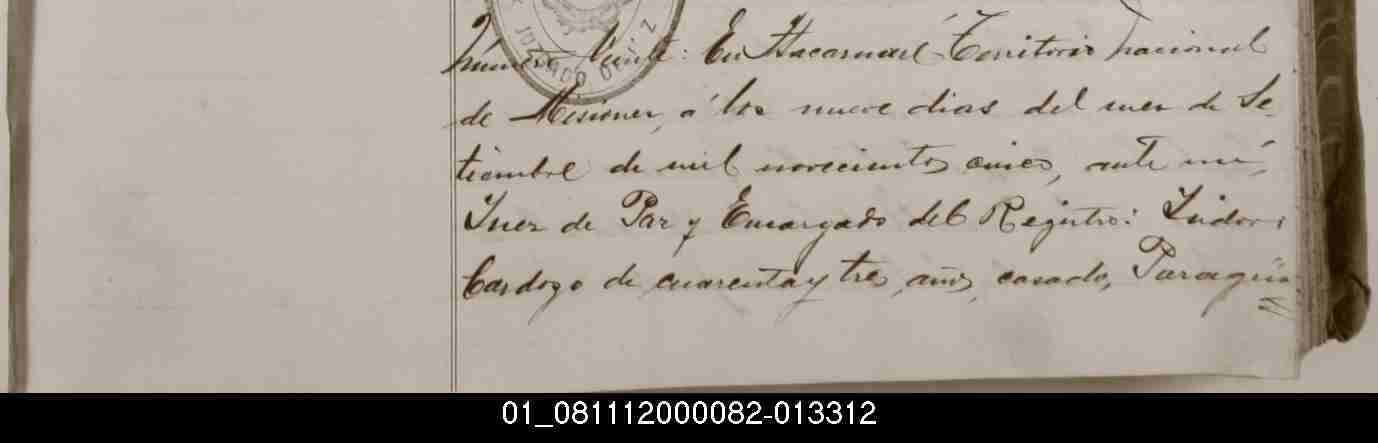 JUZGADO DE
Número Veinte: En Itacaruaré Territorio nacional
de Misiones, á los nueve dias del mes de Se-
tiembre de mil novecientos cinco, ante mí,
Juez de Paz y Encargado del Registro: Isidoro
Cardozo de cuarenta y tres años, casado, Paragua
01_081112000082-013312